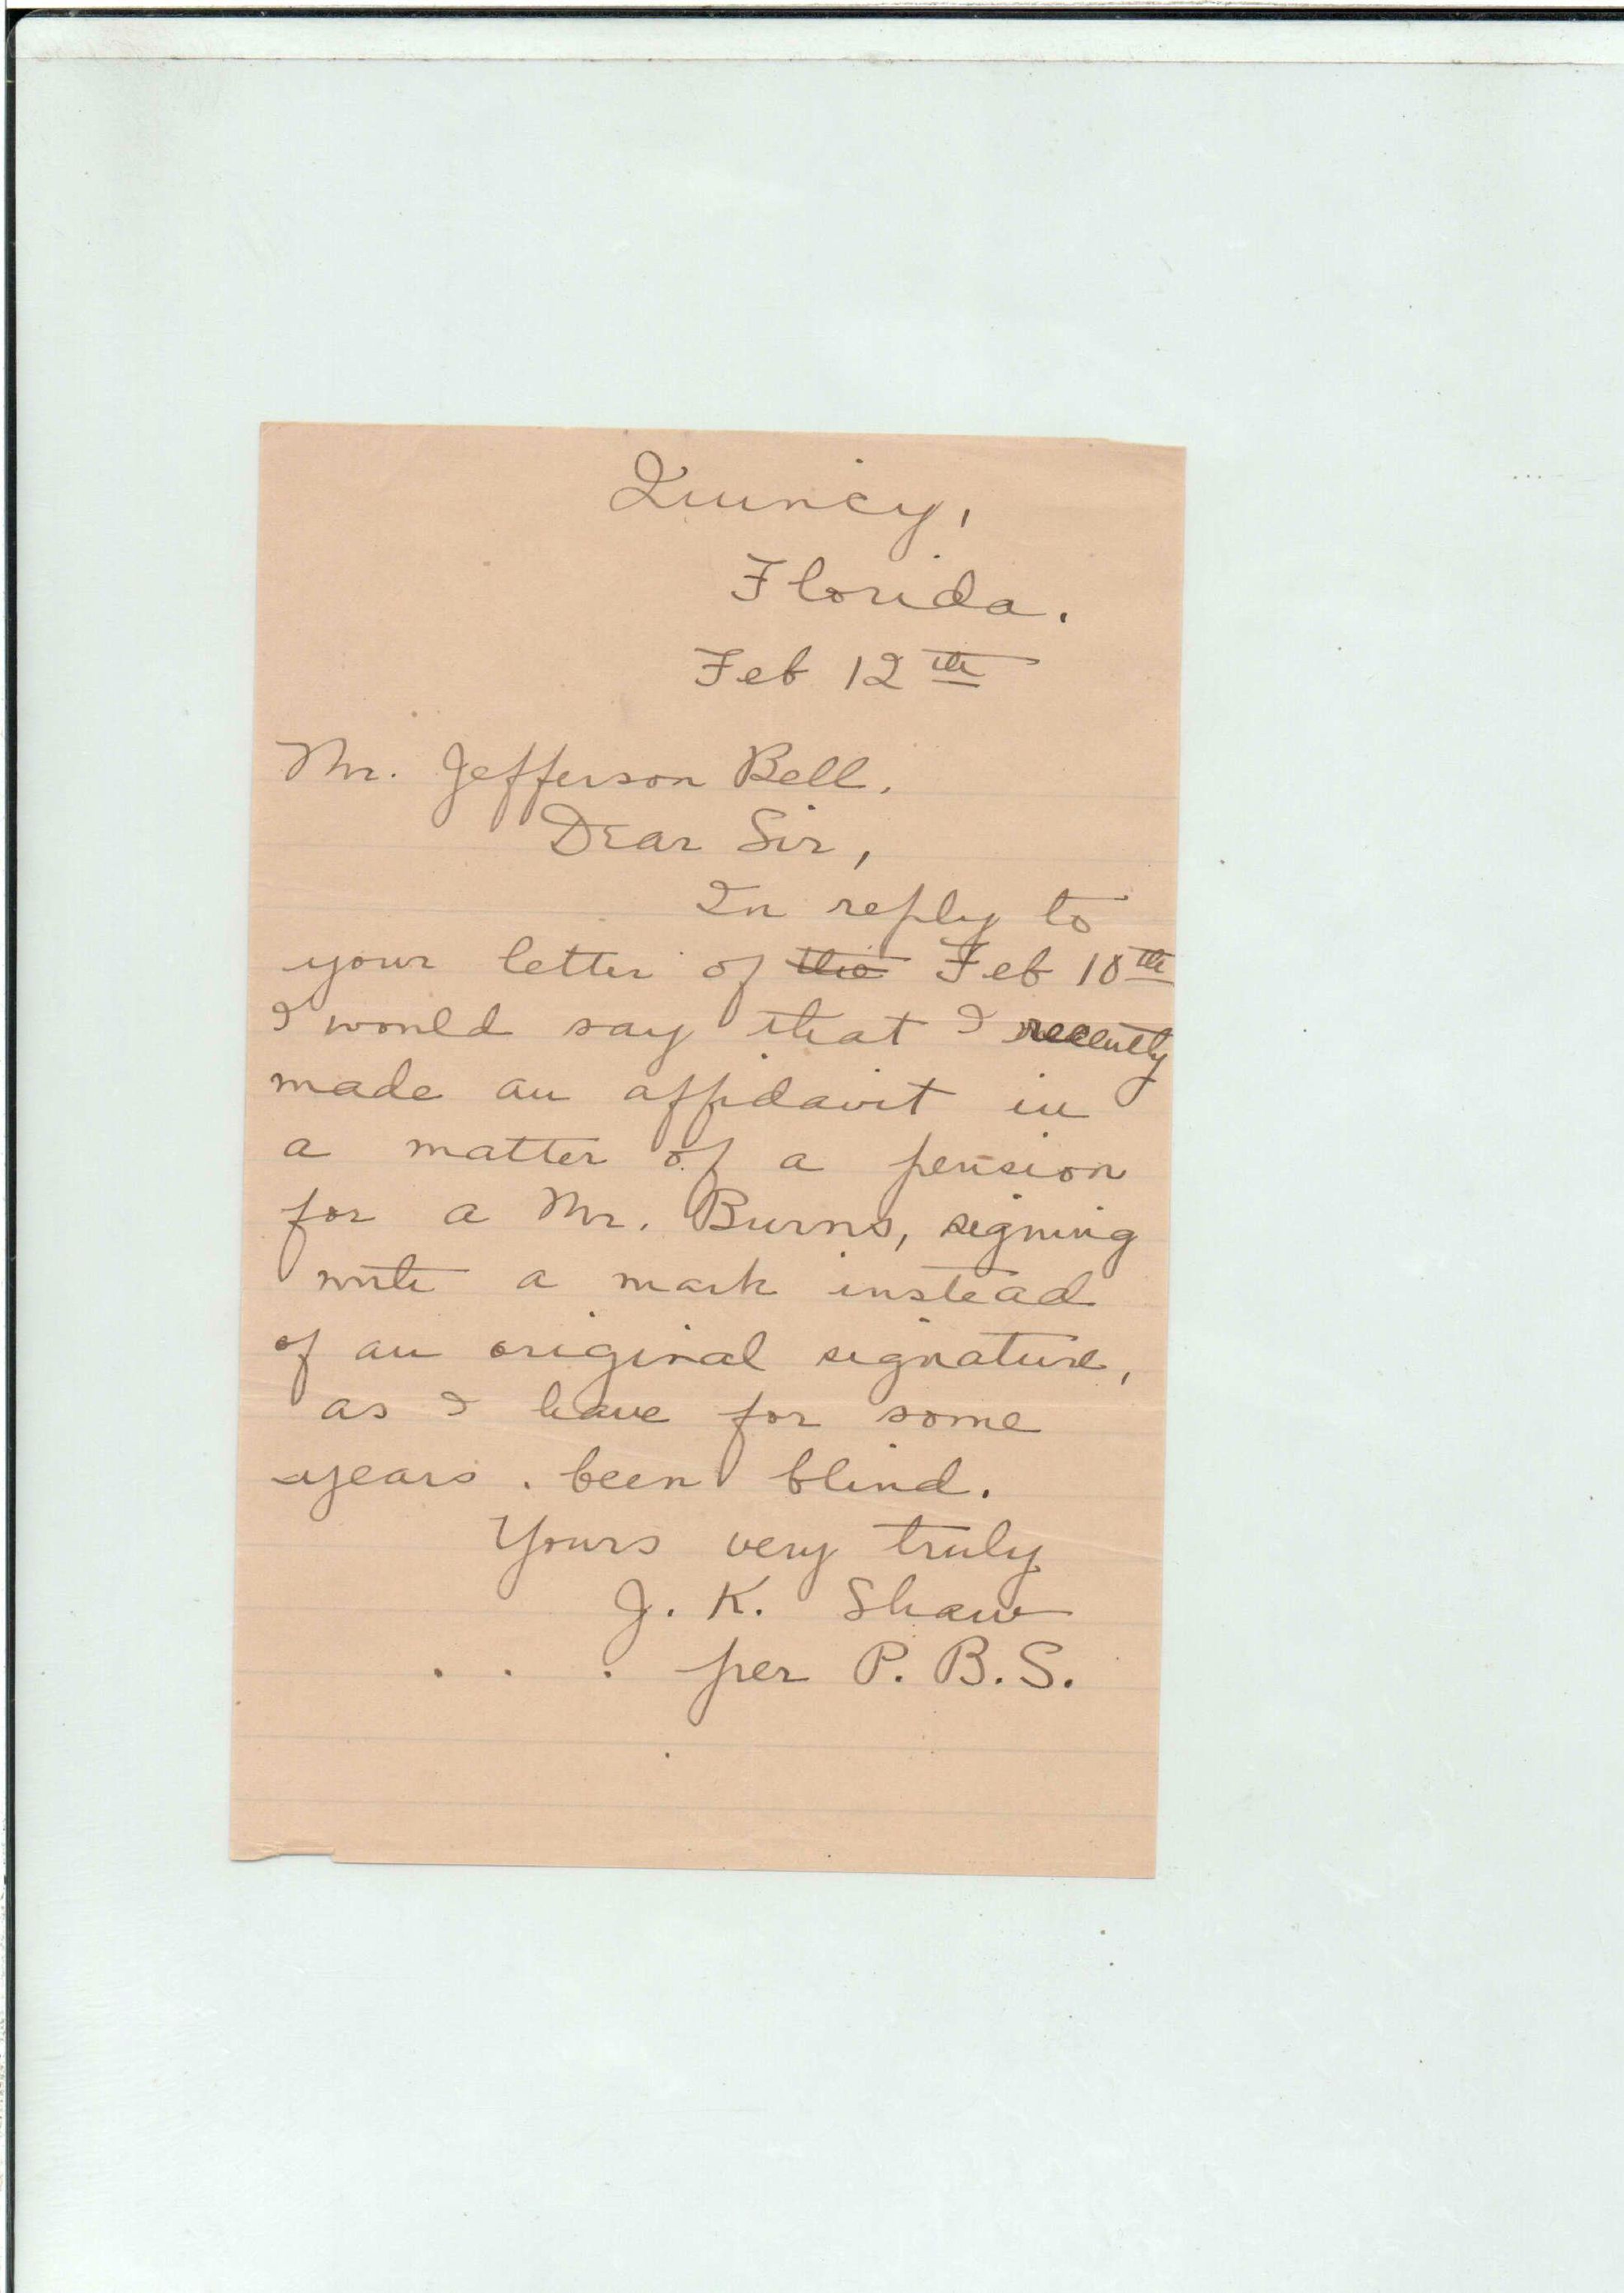 Quincy,
Florida.
Feb 12th
Mr. Jefferson Bell.
Dear Sir,
In reply to
your letter of this Feb 10th
I would say that I recently
made an affidavit in
a matter of a pension
for a Mr. Burns, signing
with a mark instead
of an original signature,
as I have for some
years been blind.
Yours very truly
J. K. Shaw
per P. B. S.